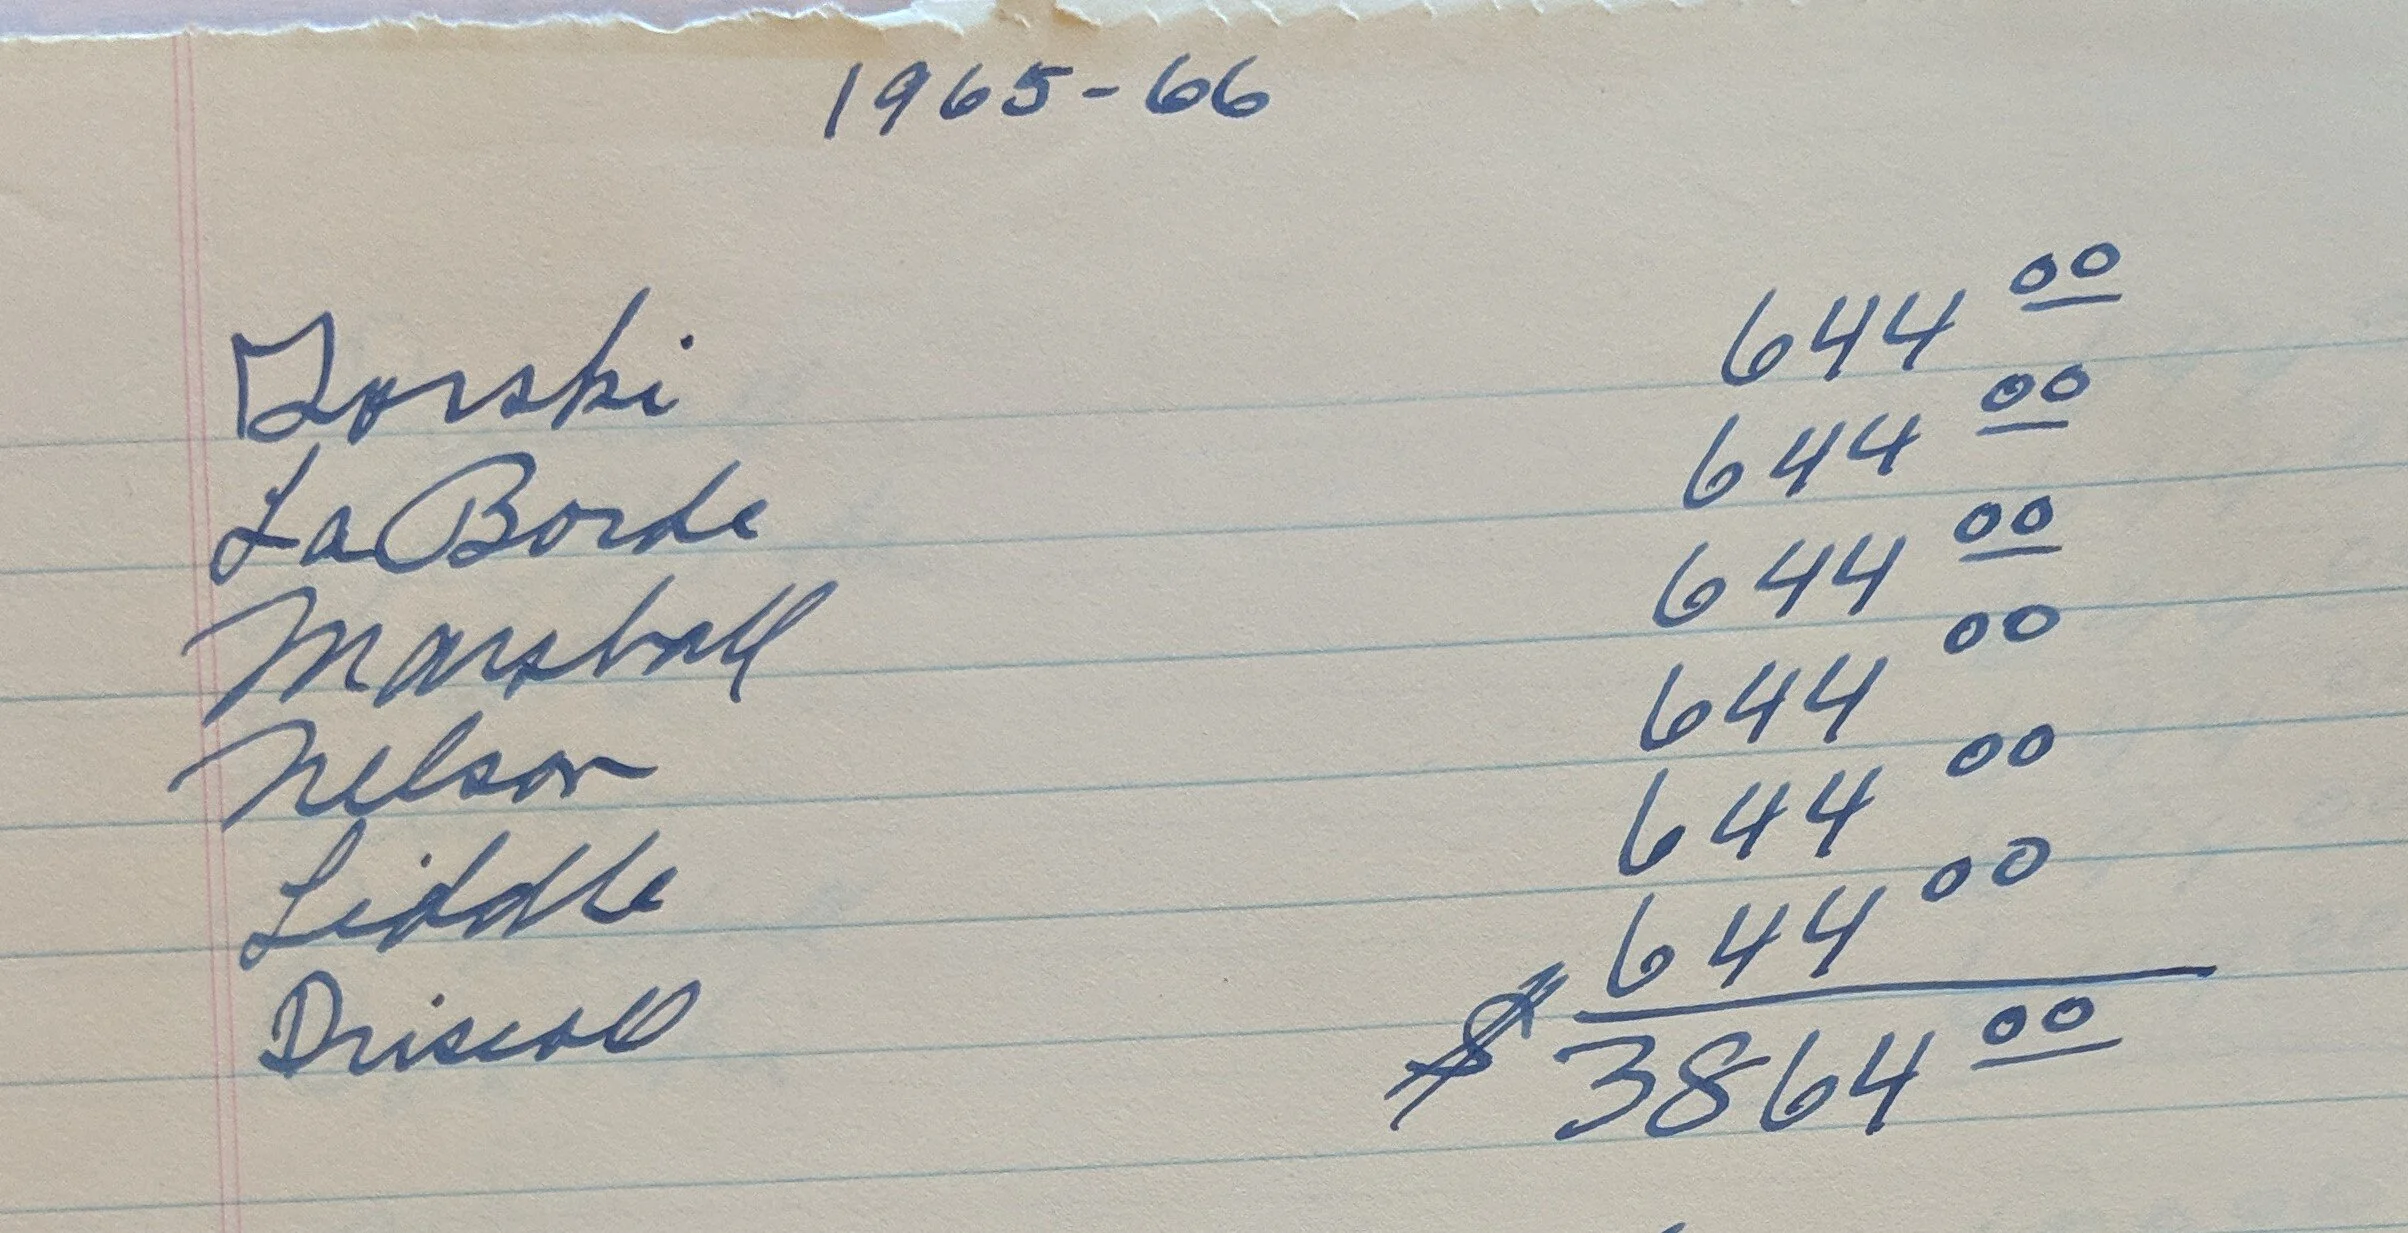 1965-66
Gorski 644 00
LaBorde 644 00
Marshall 644 00
Nelson 644 00
Liddle 644 00
Driscoll 644 00
$ 3864 00